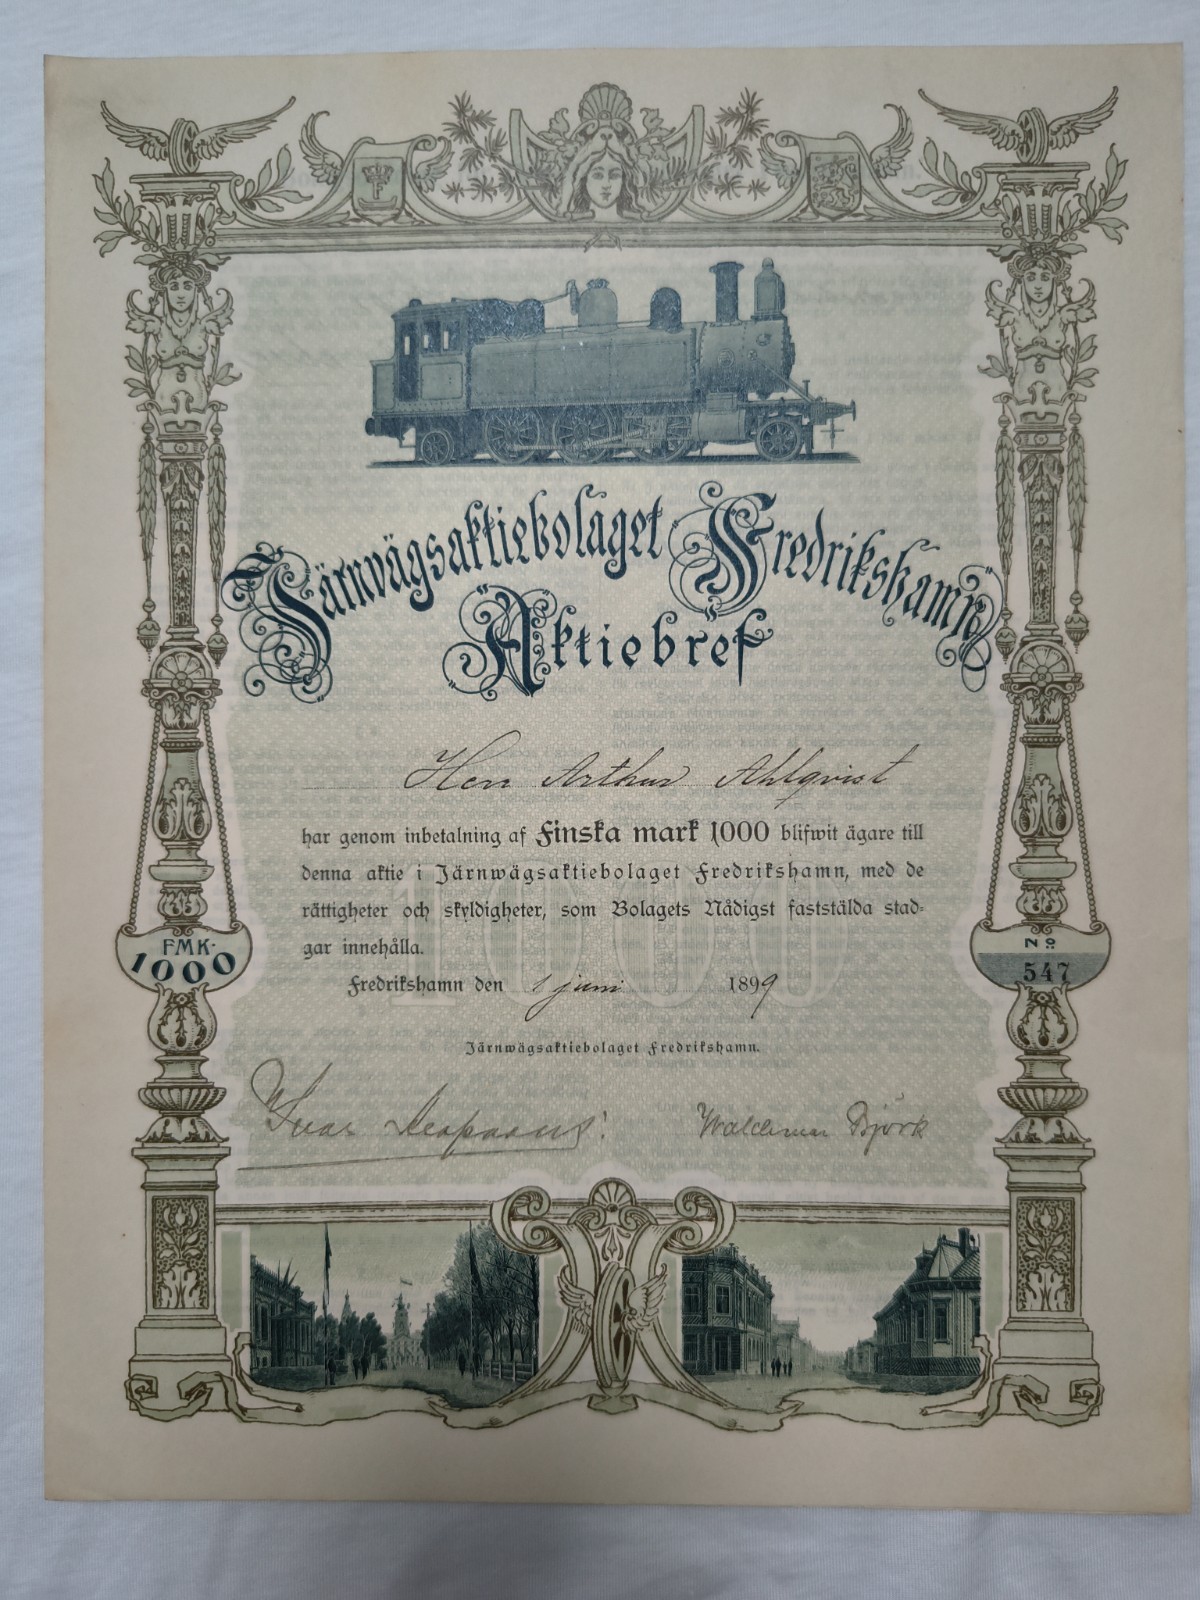 Järnvägsaktiebolaget Fredrikshamn
Aktiebref
Herr Arthur Ahlqvist
har genom inbetalning af Finska mark 1000 blifwit ägare till
denna aktie i Järnwägsaktiebolaget Fredrikshamn, med de
rättigheter och skyldigheter, som Bolagets Nådigst faststälda stad-
gar innehålla.
FMK.
1000
No
547
Fredrikshamn den 1 juni 1899
Järnwägsaktiebolaget Fredrikshamn.
Waldemar Björk